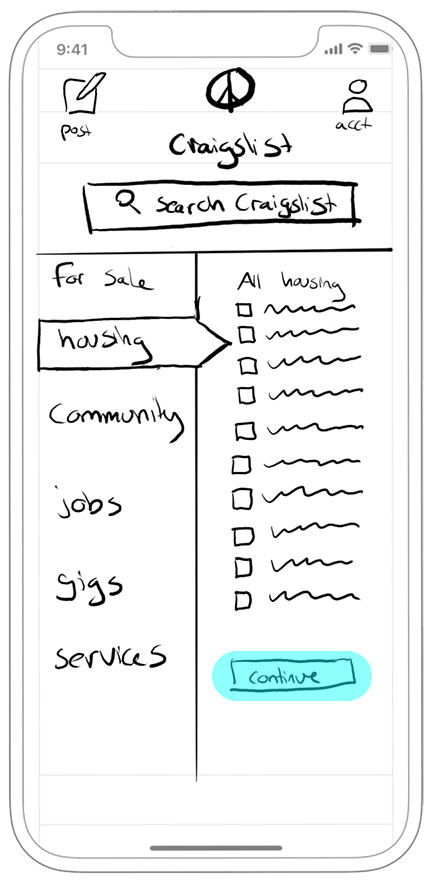 9:41
post
acct
Craigslist
Search Craigslist
for sale
housing
Community
jobs
gigs
services
All housing
continue